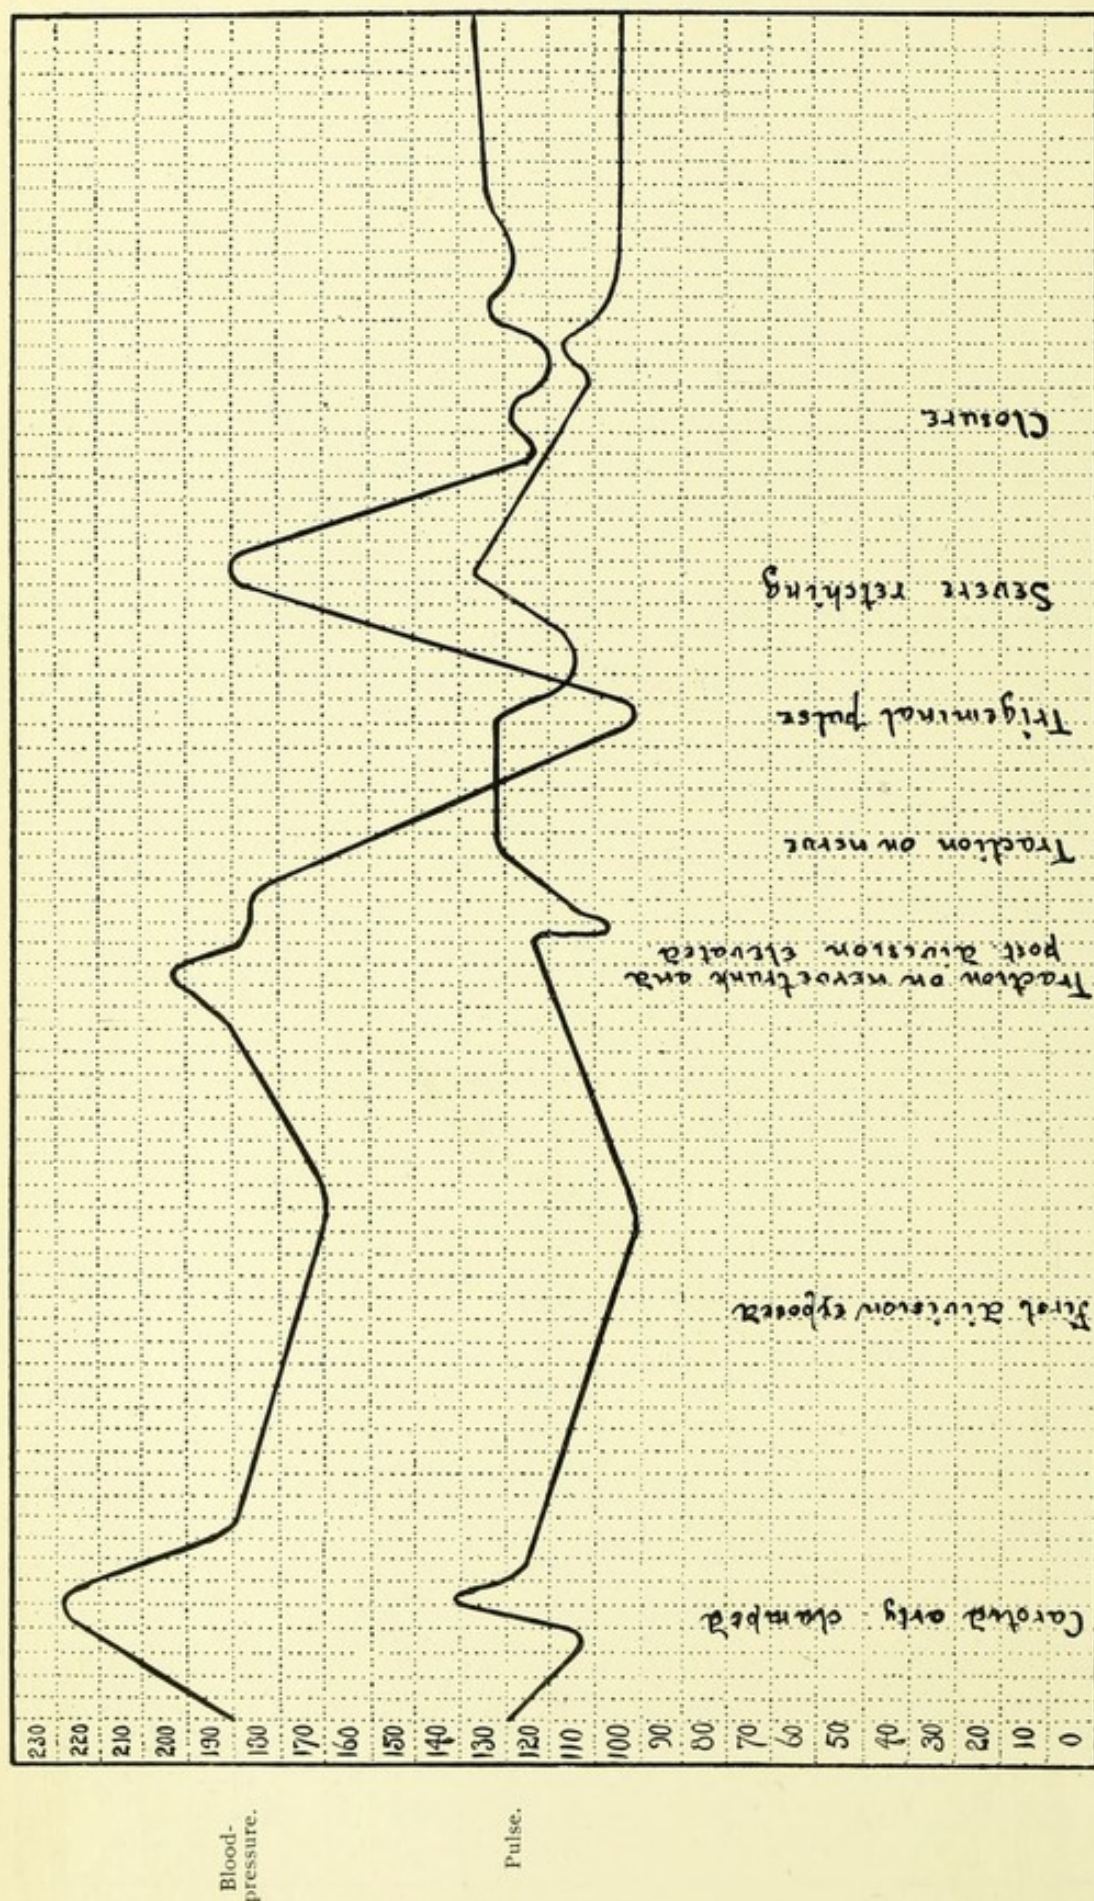 Blood-
pressure.
Pulse.
230
220
210
200
190
180
170
160
150
140
130
120
110
100
90
80
70
60
50
40
30
20
10
0
Carotid arty. clamped
First division exposed
Traction on nerve trunk and
post division elevated
Traction on nerve
Trigeminal pulse
Severe retching
Closure